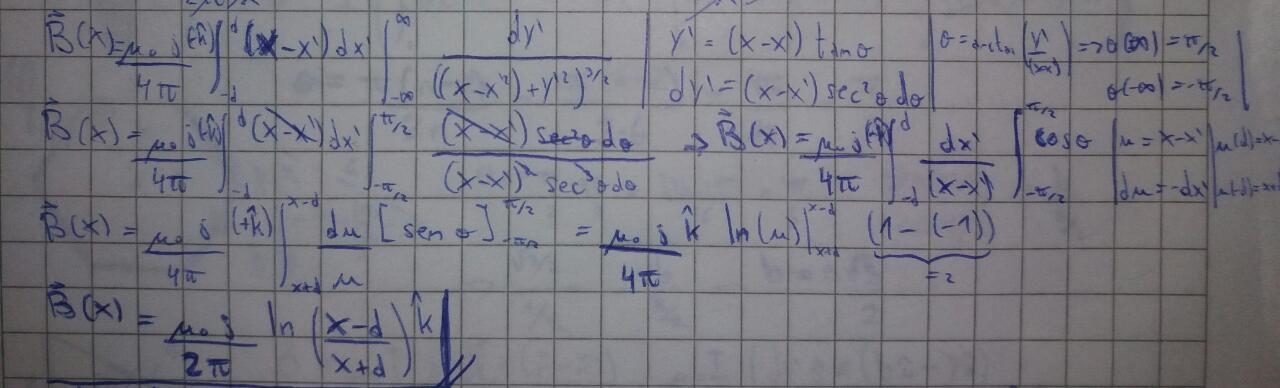 B⃗(x) = μ₀ j (-k̂) / 4π ∫_{-d}^{d} (x-x') dx' ∫_{-∞}^{∞} dy' / ((x-x'²)+y'²)^{3/2} | y' = (x-x') tan θ | θ = arctan(y'/(x-x')) => θ(∞) = π/2
dy' = (x-x') sec²θ dθ | θ(-∞) = -π/2
B⃗(x) = μ₀ j (-k̂) / 4π ∫_{-d}^{d} (x-x') dx' ∫_{-π/2}^{π/2} (x-x') sec²θ dθ / (x-x')² sec³θ dθ => B⃗(x) = μ₀ j (-k̂) / 4π ∫_{-d}^{d} dx' / (x-x') ∫_{-π/2}^{π/2} cos θ | u = x-x' | u(d) = x-
du = -dx' | u(-d) = x+d
B⃗(x) = μ₀ j (+k̂) / 4π ∫_{x+d}^{x-d} du / u [sen θ]_{-π/2}^{π/2} = μ₀ j / 4π k̂ ln(u)|_{x+d}^{x-d} (1-(-1))
= 2
B⃗(x) = μ₀ j / 2π ln((x-d) / (x+d)) k̂